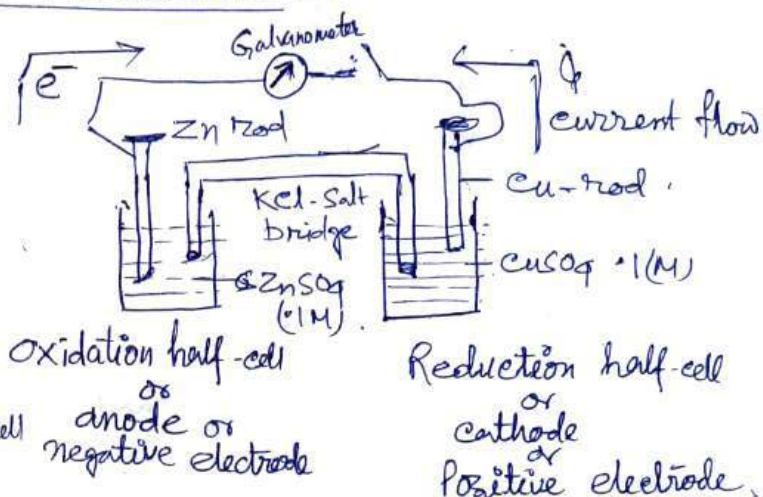 Galvanometer
e⁻
Zn rod
current flow
Cu-rod.
KCl-Salt
bridge
ZnSO4
(·1M).
CuSO4 ·1(M)
Oxidation half-cell
or
anode or
negative electrode
Reduction half-cell
or
cathode
or
Positive electrode.